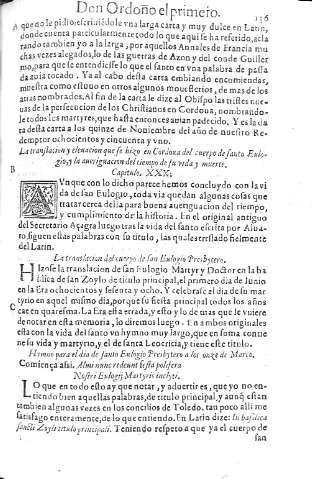 Don Ordoño el primero.
156
A que no le pidio escriuiesse vna larga carta y muy dulce en Latin,
donde cuenta particularmente todo lo que aqui se ha referido, acla
rando tambien yo a la larga, por aquellos Annales de Francia mu
chas vezes alegados, lo de las guerras de Aznar y del conde Guiller
mo, para que se entendiesse lo que el santo en vna palabra de passa
da auia tocado. Ya al cabo desta carta embiando encomiendas,
muestra como estuuo en otros algunos monesterios, de mas de los
atras nombrados. Al fin de la carta le dize al Obispo las tristes nue-
uas de la persecucion de los Christianos en Cordoua, nombrando-
le todos los martyres, que hasta entonces auian padecido. Y es la da
ta desta carta a los quinze de Nouiembre del año de nuestro Re-
demptor ochocientos y cincuenta y vno.
La translacion y eleuacion que se hizo en Cordoua del cuerpo de santo Eulo-
gio, y la aueriguacion del tiempo de su vida y muerte.
B
Capitulo. XXX.
AVnque con lo dicho parece hemos concluydo con la vi
da de san Eulogio, toda via quedan algunas cosas que
tratar cerca della para buena aueriguacion del tiempo,
y cumplimiento de la historia. En el original antiguo
del Secretario Açagra luego tras la vida del santo escrita por Alua-
ro, siguen estas palabras con su titulo, las quales trasladò fielmente
del Latin.
La translacion del cuerpo de san Eulogio Presbytero.
Hizose la translacion de san Eulogio Martyr y Doctor en la ba
silica de san Zoylo de titulo principal, el primero dia de Iunio
en la Era ochocientos y sesenta y ocho. Y celebrase el dia de su mar
tyrio en aquel mismo dia, porque su fiesta principal todos los años
C cae en quaresma. La Era està errada, y esto y lo de mas que le vuiere
de notar en esta memoria, lo diremos luego. En ambos originales
esta con la vida del santo vn hymno muy largo, que en suma contie
ne su vida y martyrio, y el de santa Leocricia, y tiene este titulo.
Hymno para el dia de santo Eulogio Presbytero a los onze de Março.
Comiença assi. Almi nunc redeunt festa polifera
Nostri Eulogij Martyris inclyti.
LO que en todo esto ay que notar, y aduertires, que yo no en-
tiendo bien aquellas palabras, de titulo principal, y aunq̃ estan
tambien algunas vezes en los concilios de Toledo, tan poco alli me
satisfago enteramente, de lo que entiendo. En Latin dize: In basilica
sancti Zoyli tituli principali. Teniendo respeto a que ya el cuerpo de
san